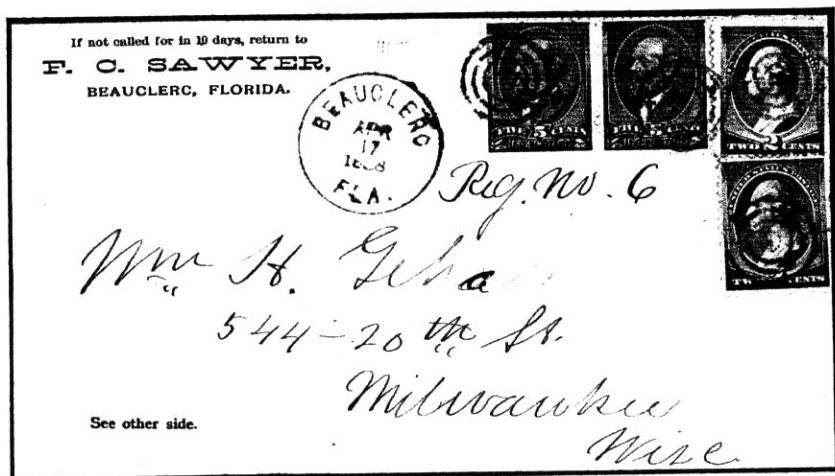 If not called for in 10 days, return to
F. C. SAWYER,
BEAUCLERC, FLORIDA.
BEAUCLERC
APR
17
1888
FLA.
5 CENTS
5
TWO 2 CENTS
TWO CENTS
Reg. No. 6
Wm H.
544-20th St.
Milwaukee
Wisc
See other side.